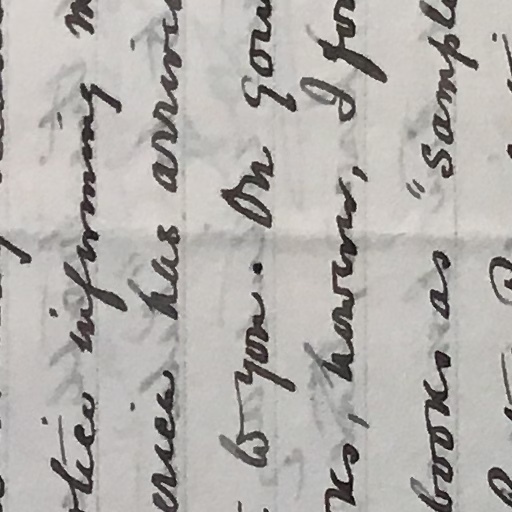 otice informing m
erica has arrived
to you. On goin
ks, however, I fou
books as "Sample